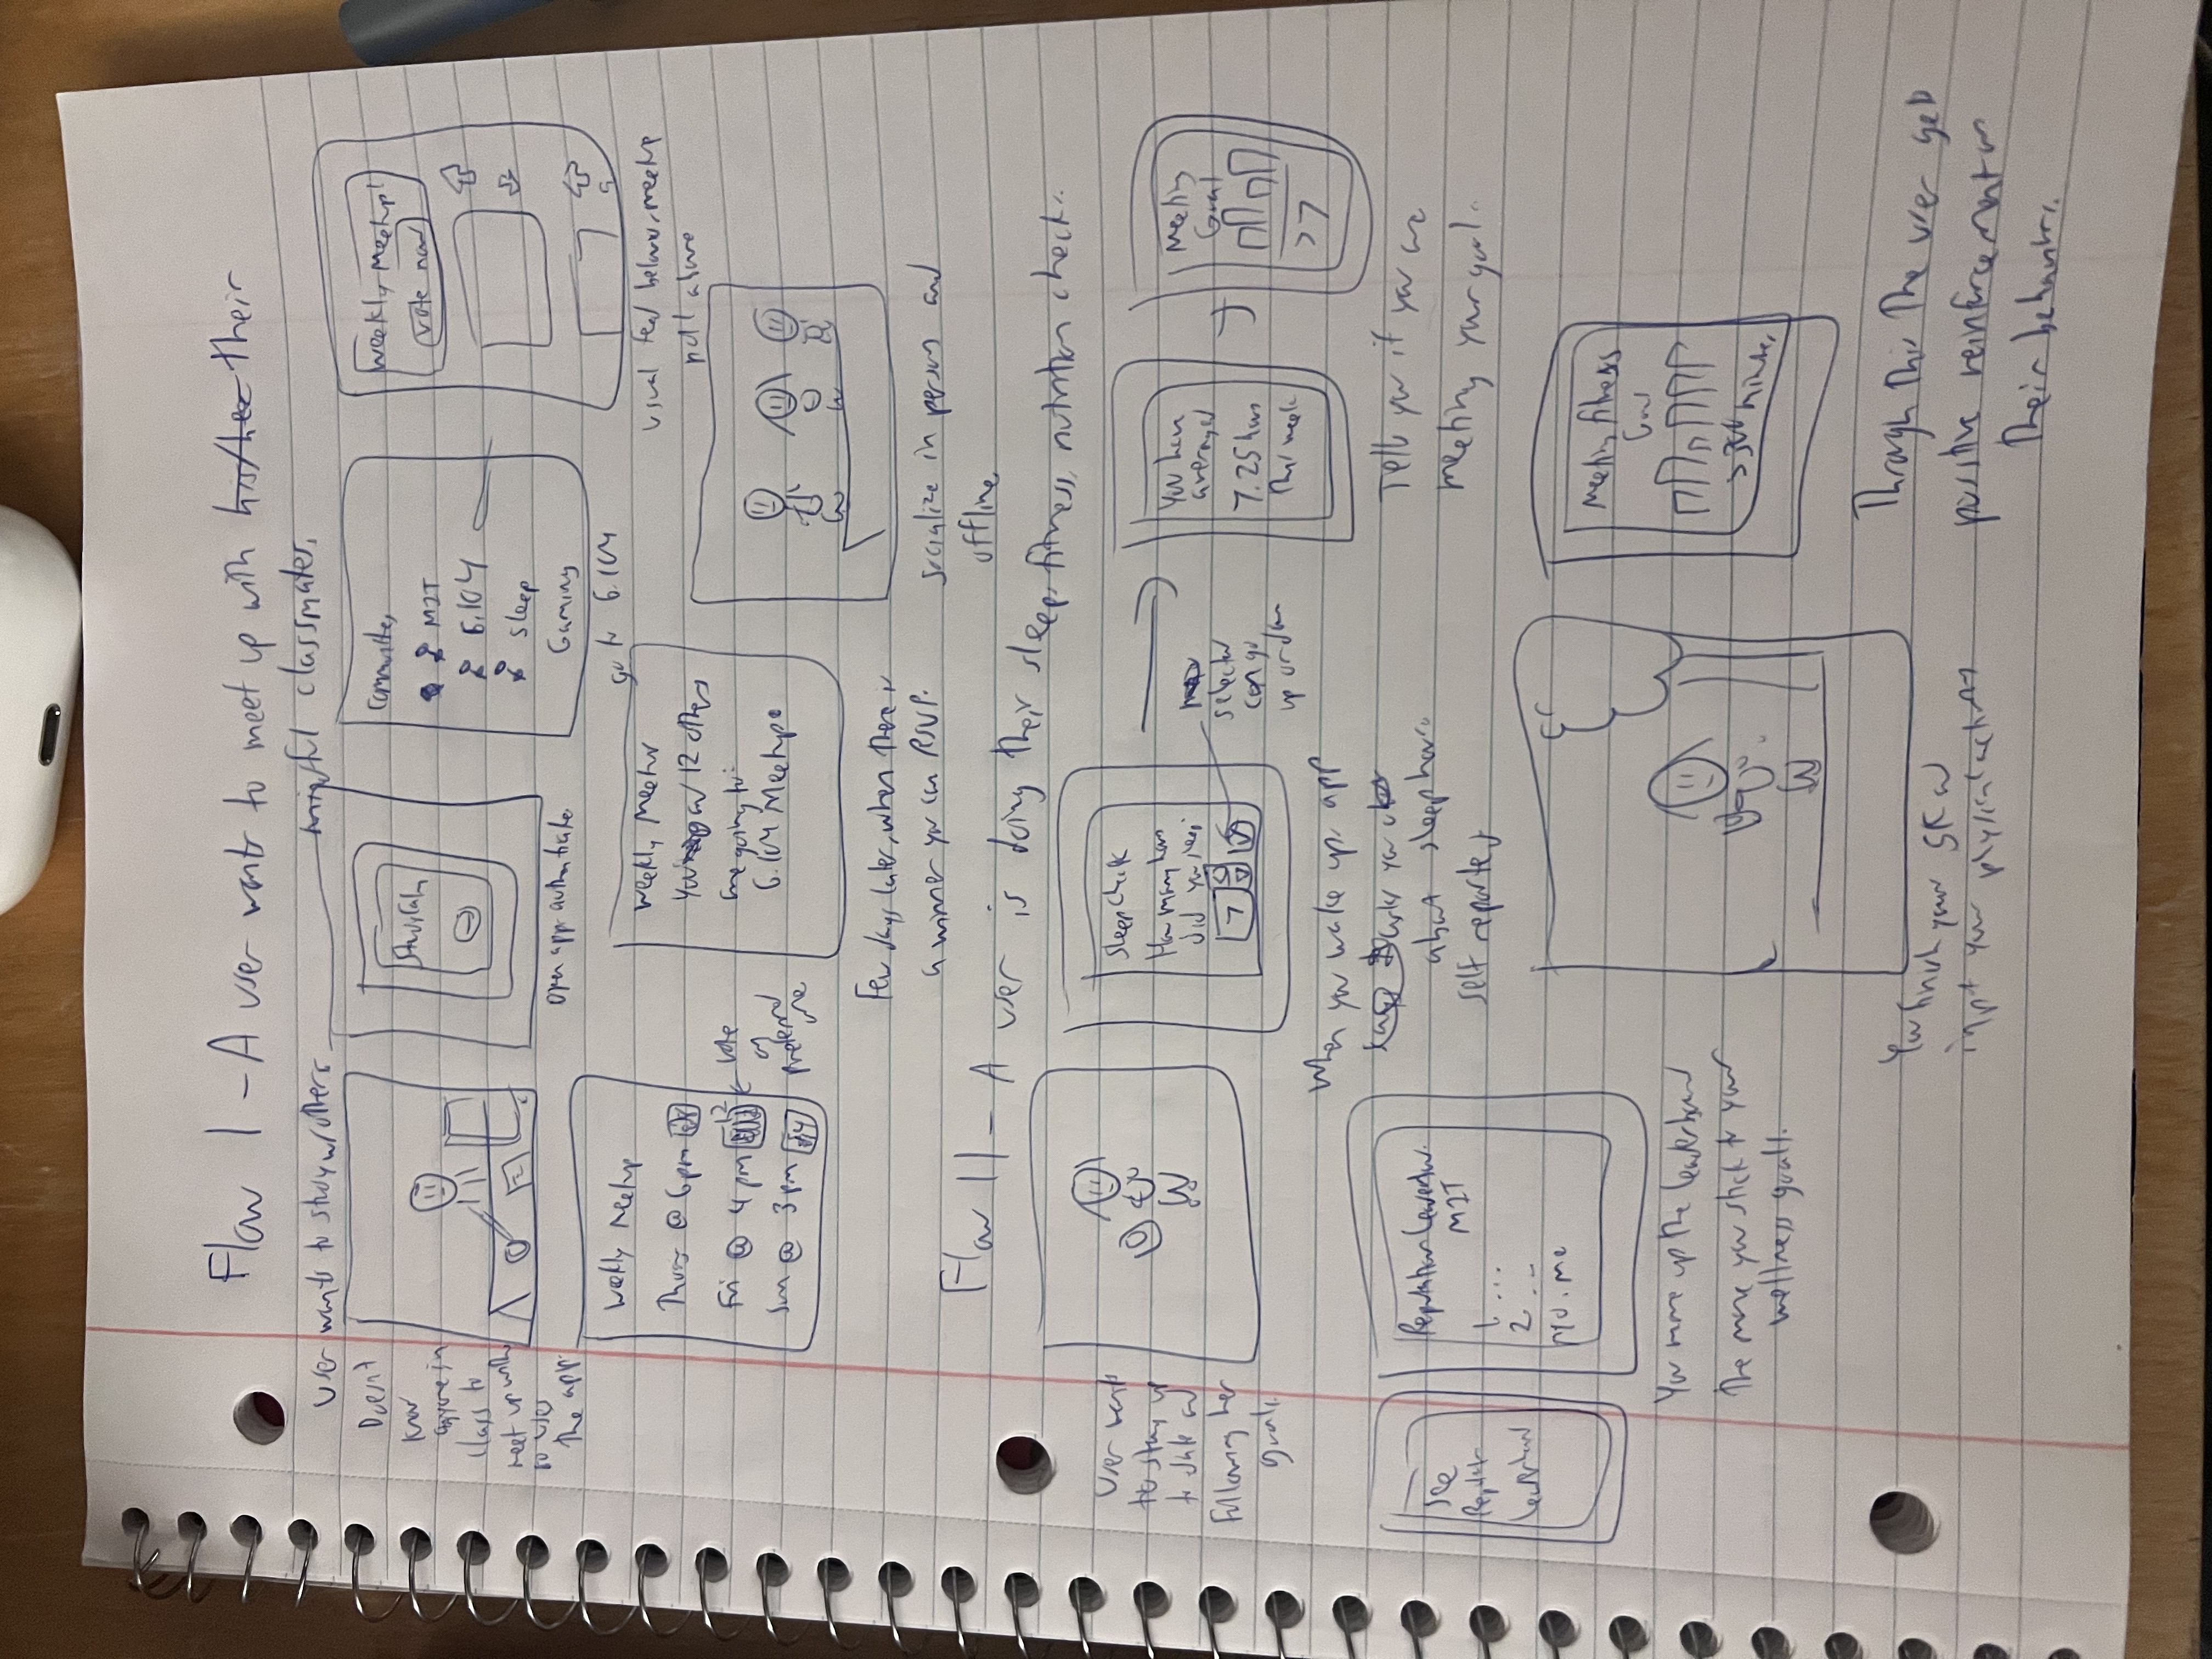 Flow I - A user wants to meet up with his/her their
mindful classmates.
User wants to study w/ others
Doesn't
know
anyone in
class to
meet up with
so uses
the app.
StudyCalm
open app, authenticate
Communities
MIT
6.104
Sleep
Gaming
go to 6.104
Weekly Meetup!
vote now
usual feed below, meetup
poll above
Weekly Meetup
Thurs @ 6 pm
Fri @ 4 pm 12
Sun @ 3 pm 4
vote
on
preferred
one
Weekly Meetup
You and 12 others
are going to:
6.104 Meetup
Few days later, when there is
a winner you can RSVP.
socialize in person and
offline
Flow II - A user is doing their sleep, fitness, nutrition check.
User wants
to stay up
to date on
following her
goals.
Sleep Check
How many hours
did you sleep?
7
selector
can go
up or down
When you wake up, app
asks you
about sleep hours.
self reported
You have
averaged
7.25 hours
this week
Meeting
Goal
>7
Tells you if you are
meeting your goal.
See
Reputation
Leaderboard
Reputation Leaderboard
MIT
1. ...
2. ...
me
You move up the leaderboard
the more you stick to your
wellness goals.
You finish your 5K and
input your physical activity
Meeting fitness
Goal
>300 minutes
Through this the user gets
positive reinforcement on
their behaviors.